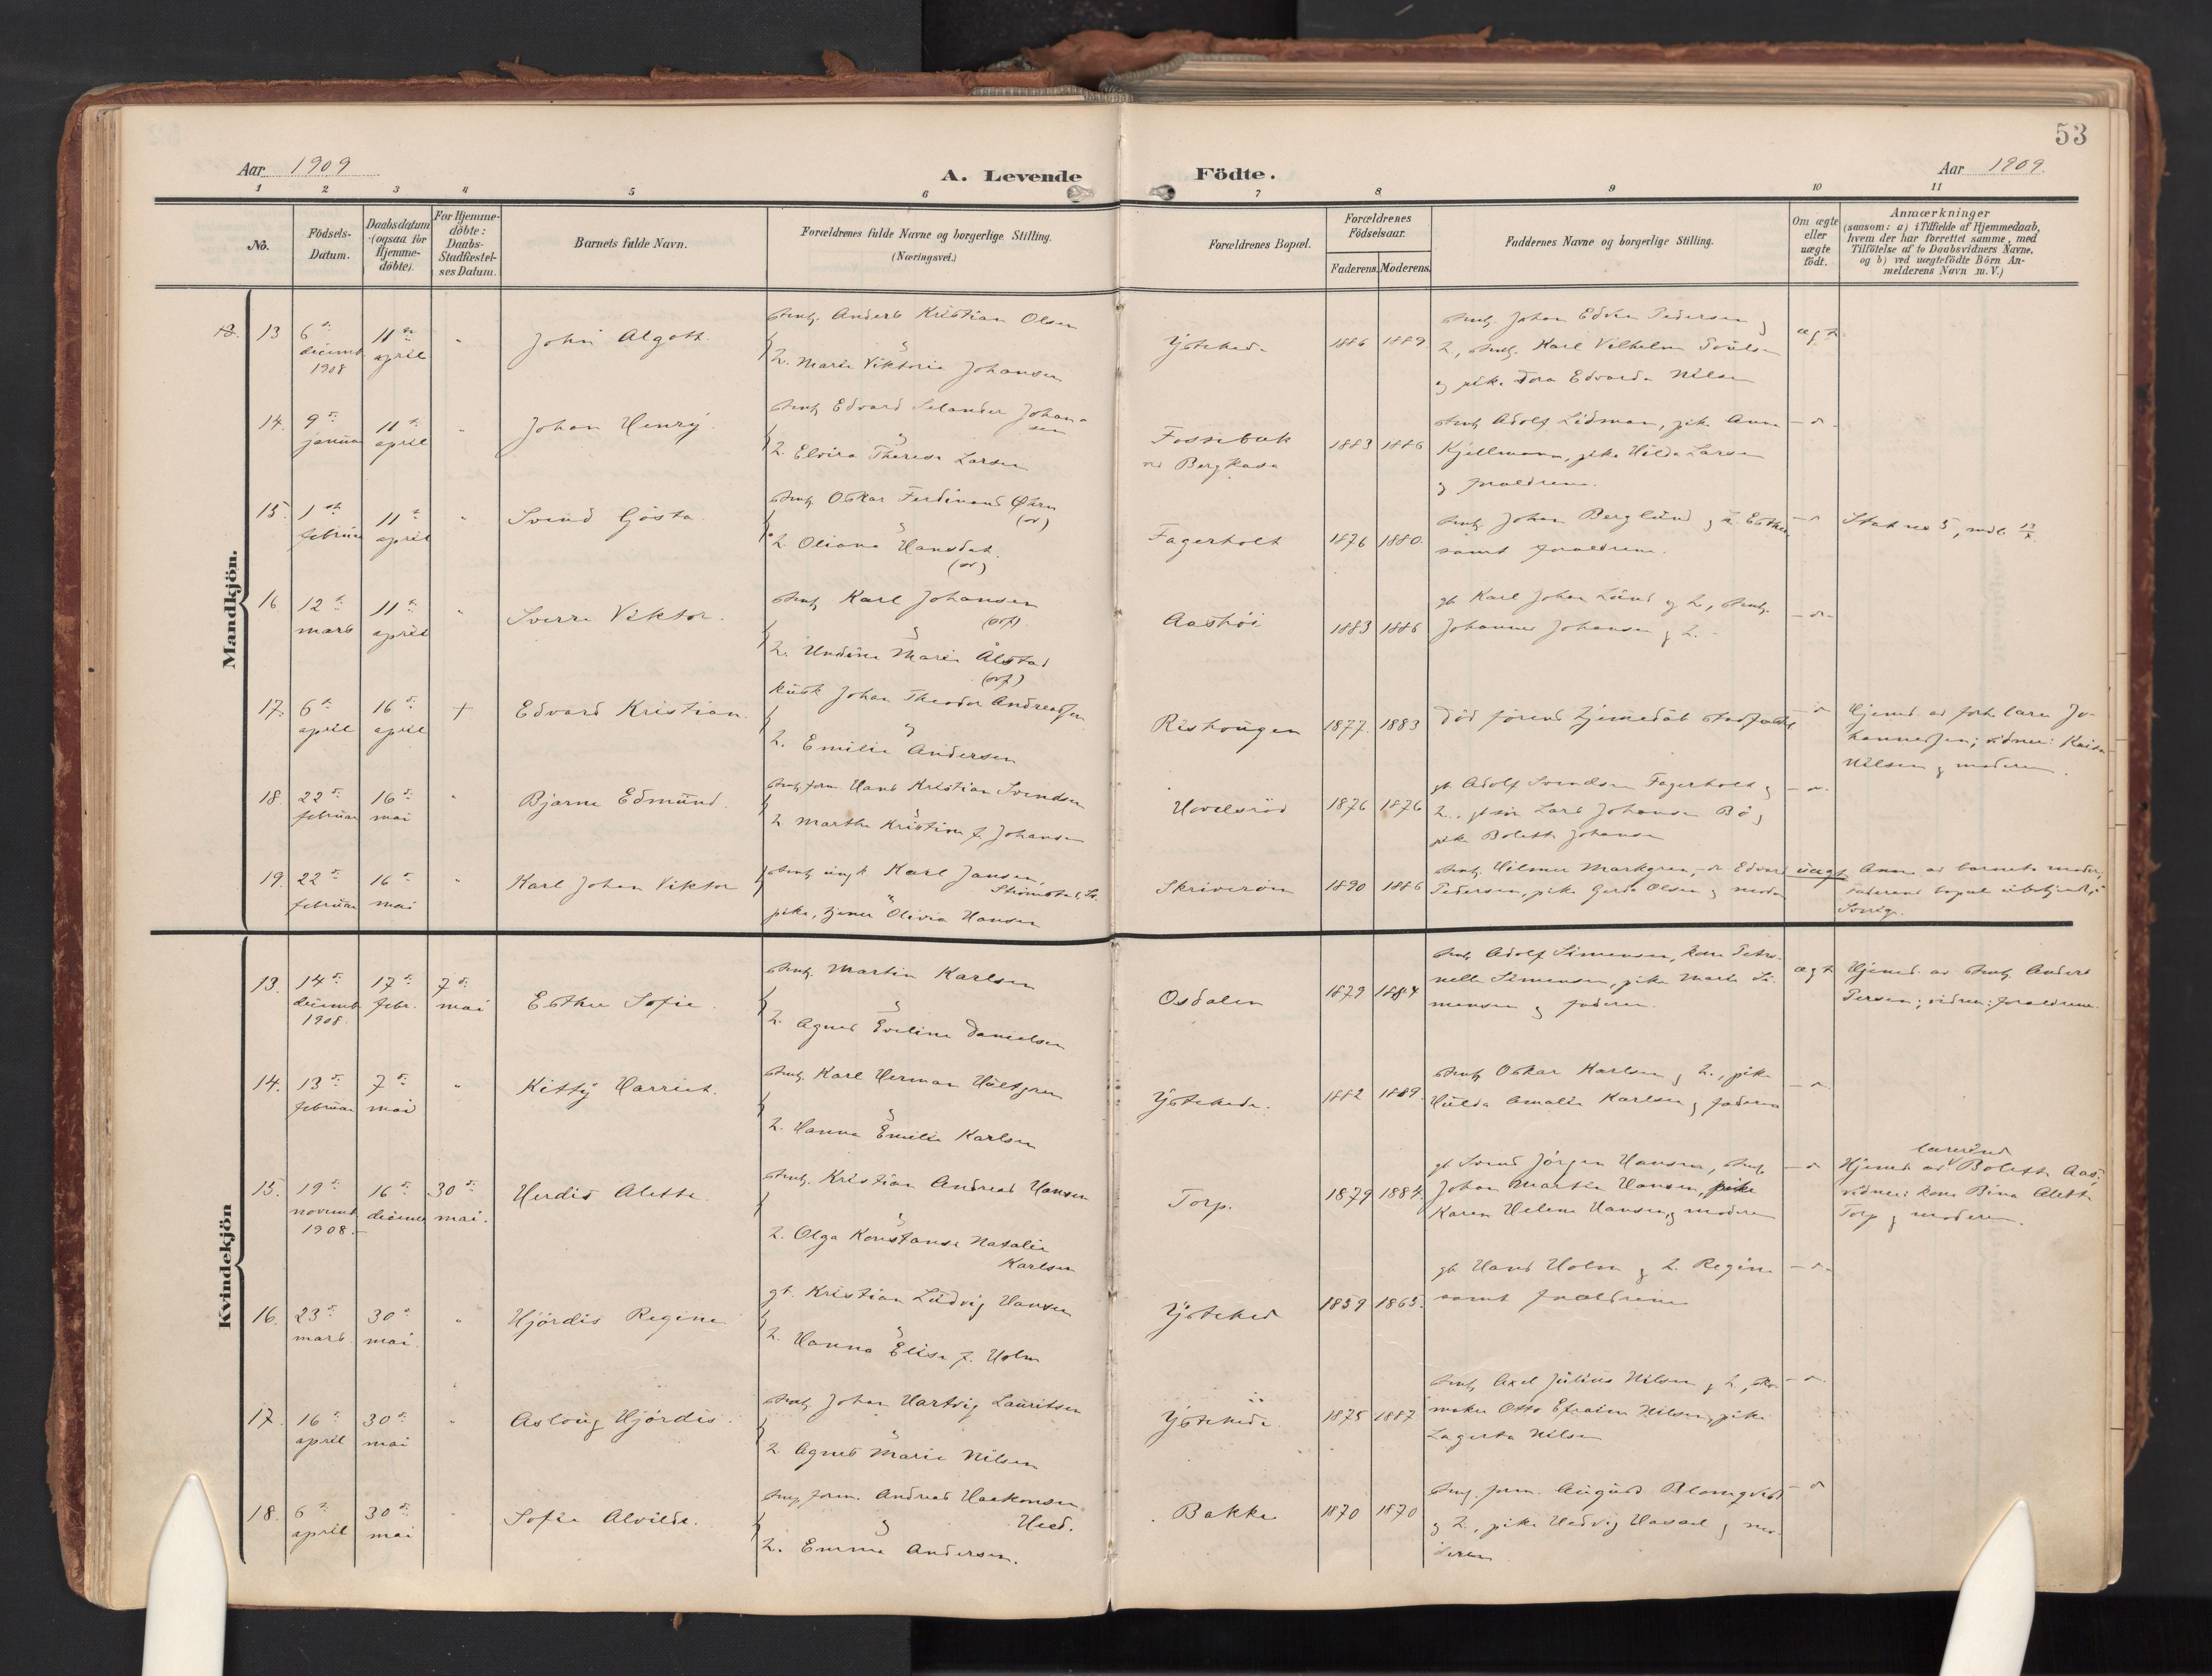 53
Aar 1909
A. Levende
Födte.
Aar 1909.
1 2 3 4 5 6 7 8 9 10 11
No.
Födsels-
Datum.
Daabsdatum
(ogsaa for
Hjemme-
döbte).
For Hjemme-
döbte:
Daabs-
Stadfæstel-
ses Datum.
Barnets fulde Navn.
Forældrenes fulde Navne og borgerlige Stilling.
(Næringsvei.)
Forældrenes Bopæl.
Forældrenes
Födselsaar.
Faderens. Moderens.
Faddernes Navne og borgerlige Stilling.
Om ægte
eller
uægte
födt.
Anmærkninger
(saasom: a) i Tilfælde af Hjemmedaab,
hvem der har forrettet samme, med
Tilföielse af to Daabsvidners Navne.
og b) ved uægtefödte Börn An-
melderens Navn m. V.)
Mandkjön.
13 6te decemb 1908
11te april
John Algott.
Anders Kristian Olsen
Marie Viktoria Johansen
Ystehede
1886 1889
Johan Edvin Pedersen
Karl Vilhelm
og pike Dora Edvarda Nilsen
ægt
14. 9de januar
11te april
Johan Henry.
Edvard Selander Johan-
sen
Elvira Therese Larsen
Fossebak
ved Bergkasa
1883 1886
Adolf Lidman, pike Anna
Kjellmann, pike Hilda Larsen
og forældrene.
15. 1ste februar
11te april
Svend Gösta.
Oskar Ferdinand Øhrn
Oliana Hansdat.
Fagerholt
1876 1880.
Johan Berglund og h. Esther
samt forældrene.
16 12te mars
11te april
Sverre Viktor.
Karl Johansen
Undine Marie Ålstad
Aashöi
1883 1886
gb Karl Johan Lund og h.,
Johannes Johansen og h.
17. 6te april
16de april
+
Edvard Kristian.
Kusk Johan Theodor Andreassen
Emilie Andersen
Rishaugen
1877. 1883
Död förend hjemedåb stadfæstet
Hjemd. av forh. lærer Jo-
hannessen; vidner: Kaisa
Nilsen og moderen.
18. 22de februar
16de mai
Bjarne Edmund.
form. Hans Kristian Svendsen
Marthe Kristine f. Johansen
Hovelsröd
1876 1876
gb Adolf Svendsen Fagerholt og
h., Lars Johansen Bö og
pike Bolette Johansen
19. 22de februar
16de mai
Karl Johan Viktor
ungk. Karl Jansen,
Strömstad, Sv.
pike, tjener Olivia Hansen
Skriveröen
1890 1886
Hilmer Markgren, Edvard
Pedersen, pike Gerda Olsen og moder
uægte
Anm. av barnets moder,
faderens bopæl ubekjendt,
Sverige.
Kvindekjön
13. 14de decemb 1908.
17de febr.
7de mai
Esther Sofie.
Martin Karlsen
Agnes Eveline Danielsen
Osdalen
1879 1884
Adolf Simensen, kone Petro-
nelle Simensen, pike Marte Si-
mensen og faderen.
ægt
Hjemd. av Anders
Persen; vidner: forældrene.
14. 13de februar
7de mai
Kitty Harriet.
Karl Herman Hultgren
Hanna Emilie Karlsen
Ystehede.
1882 1889.
Oskar Karlsen og h., pike
Hulda Amalie Karlsen og faderen
15. 19de novemb 1908.
16de decembe
30de mai.
Herdis Alette.
Kristian Andreas Hansen
Olga Konstanse Natalie
Karlsen
Torp.
1879 1884.
gb Svend Jörgen Hansen,
Johan Martin Hansen, pike
Karen Helene Hansen, og moderen
Hjemd av lærerinde Bolette Aas;
vidner: kone Bina Alette
Torp og moderen.
16. 23de mars.
30te mai.
Hjördis Regine
gb. Kristian Ludvig Hansen
Hanna Elise f. Holm
Ystehed
1859 1865.
gb Hans Holm og h. Regine
samt forældrene
17. 16de april
30de mai
Aslaug Hjördis
Johan Hartvig Lauritsen
Agnes Marie Nilsen
Ystehede
1875 1887
Axel Julius Nilsen og h., sko-
maker Otto Efraim Nilsen, pike
Lagerta Nilsen
18. 6te april
30de mai
Sofie Alvilde.
form. Andreas Haakonsen
Heed.
Emma Andersen.
Bakke
1870 1870
form. August Blomqvist
og h., pike Hedvig Hassel og mo-
deren